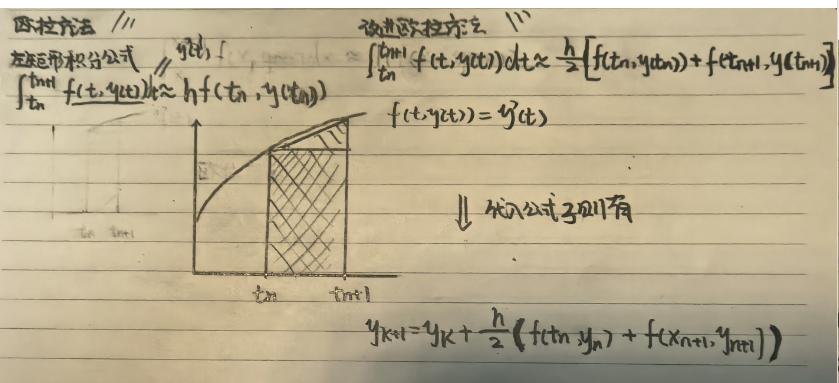 欧拉方法 ///
左矩形积分公式
y'(t)
∫_{tn}^{tn+1} f(t,y(t))dt≈hf(tn,y(tn))
改进欧拉方法 ///
∫_{tn}^{tn+1} f(t,y(t))dt≈h/2[f(tn,y(tn))+f(tn+1,y(tn+1))]
f(t,y(t))=y'(t)
⇓ 代入公式子则有
tn tn+1
tn tn+1
y_{k+1}=y_k+h/2(f(tn,yn)+f(x_{n+1},y_{n+1}))